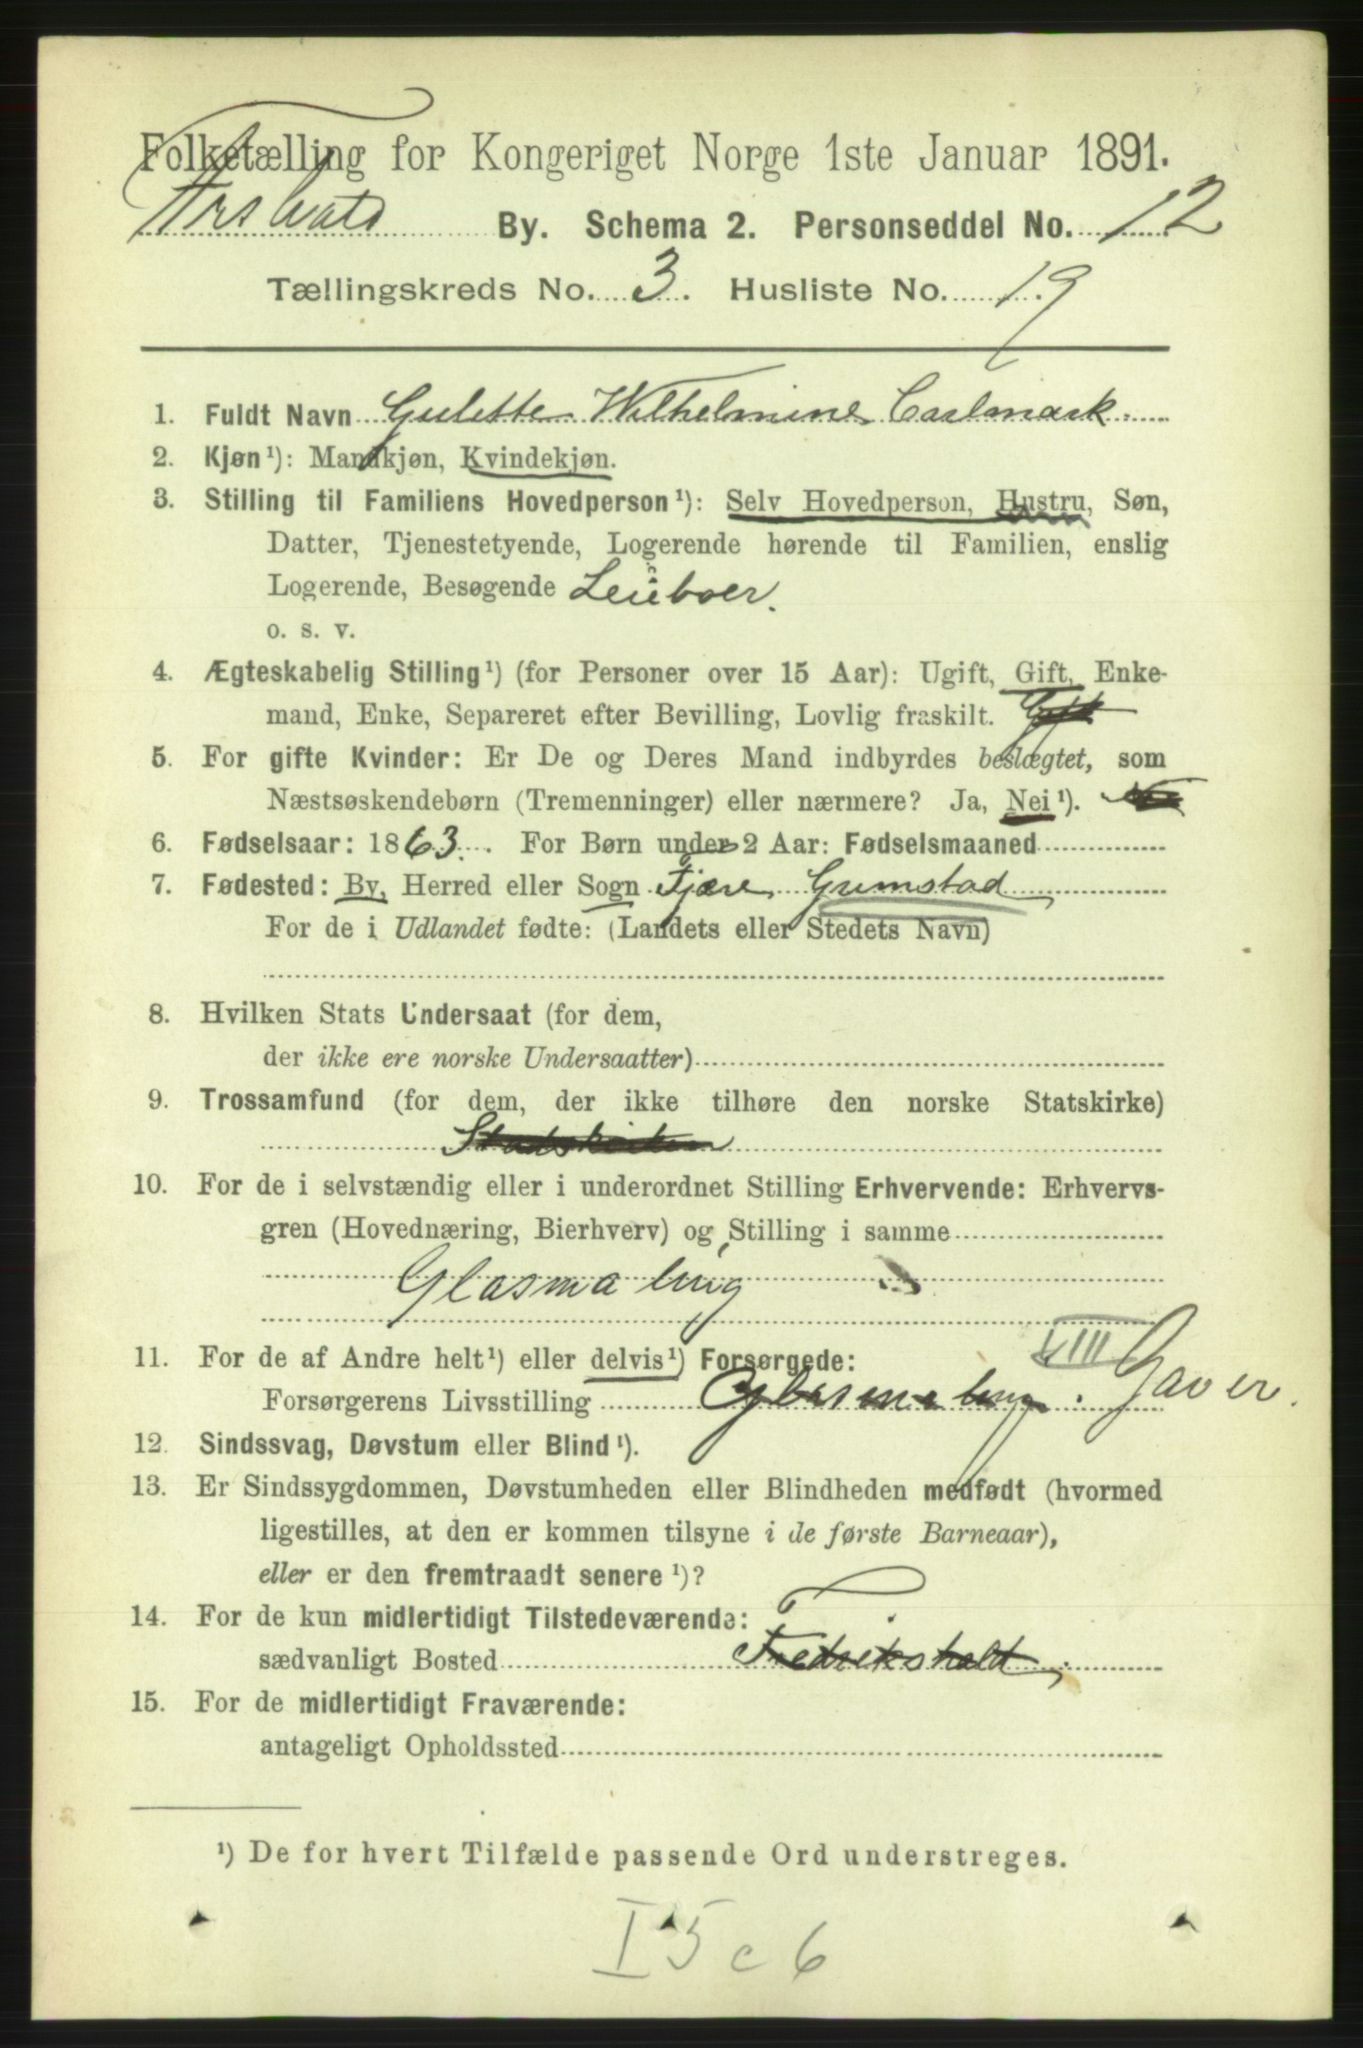 Folketælling for Kongeriget Norge 1ste Januar 1891.
By. Schema 2. Personseddel No. 12
Tællingskreds No. 3. Husliste No. 19
1. Fuldt Navn Gulette Wilhelmine Carlmark.
2. Kjøn¹): Mandkjøn, Kvindekjøn.
3. Stilling til Familiens Hovedperson¹): Selv Hovedperson, Hustru, Søn,
Datter, Tjenestetyende, Logerende hørende til Familien, enslig
Logerende, Besøgende Leieboer.
o. s. v.
4. Ægteskabelig Stilling¹) (for Personer over 15 Aar): Ugift, Gift, Enke-
mand, Enke, Separeret efter Bevilling, Lovlig fraskilt. Gift
5. For gifte Kvinder: Er De og Deres Mand indbyrdes beslægtet, som
Næstsøskendebørn (Tremenninger) eller nærmere? Ja, Nei¹).
6. Fødselsaar: 1863. For Børn under 2 Aar: Fødselsmaaned
7. Fødested: By, Herred eller Sogn Fjære Grimstad
For de i Udlandet fødte: (Landets eller Stedets Navn)
8. Hvilken Stats Undersaat (for dem,
der ikke ere norske Undersaatter)
9. Trossamfund (for dem, der ikke tilhøre den norske Statskirke)
Stadskirken
10. For de i selvstændig eller i underordnet Stilling Erhvervende: Erhvervs-
gren (Hovednæring, Bierhverv) og Stilling i samme
Glasmaling
11. For de af Andre helt¹) eller delvis¹) Forsørgede:
VIII
Forsørgerens Livsstilling Glasmaling. Gaver.
12. Sindssvag, Døvstum eller Blind¹).
13. Er Sindssygdommen, Døvstumheden eller Blindheden medfødt (hvormed
ligestilles, at den er kommen tilsyne i de første Barneaar),
eller er den fremtraadt senere¹)?
14. For de kun midlertidigt Tilstedeværende:
sædvanligt Bosted Fredrikshald.
15. For de midlertidigt Fraværende:
antageligt Opholdssted
¹) De for hvert Tilfælde passende Ord understreges.
I 5 c 6